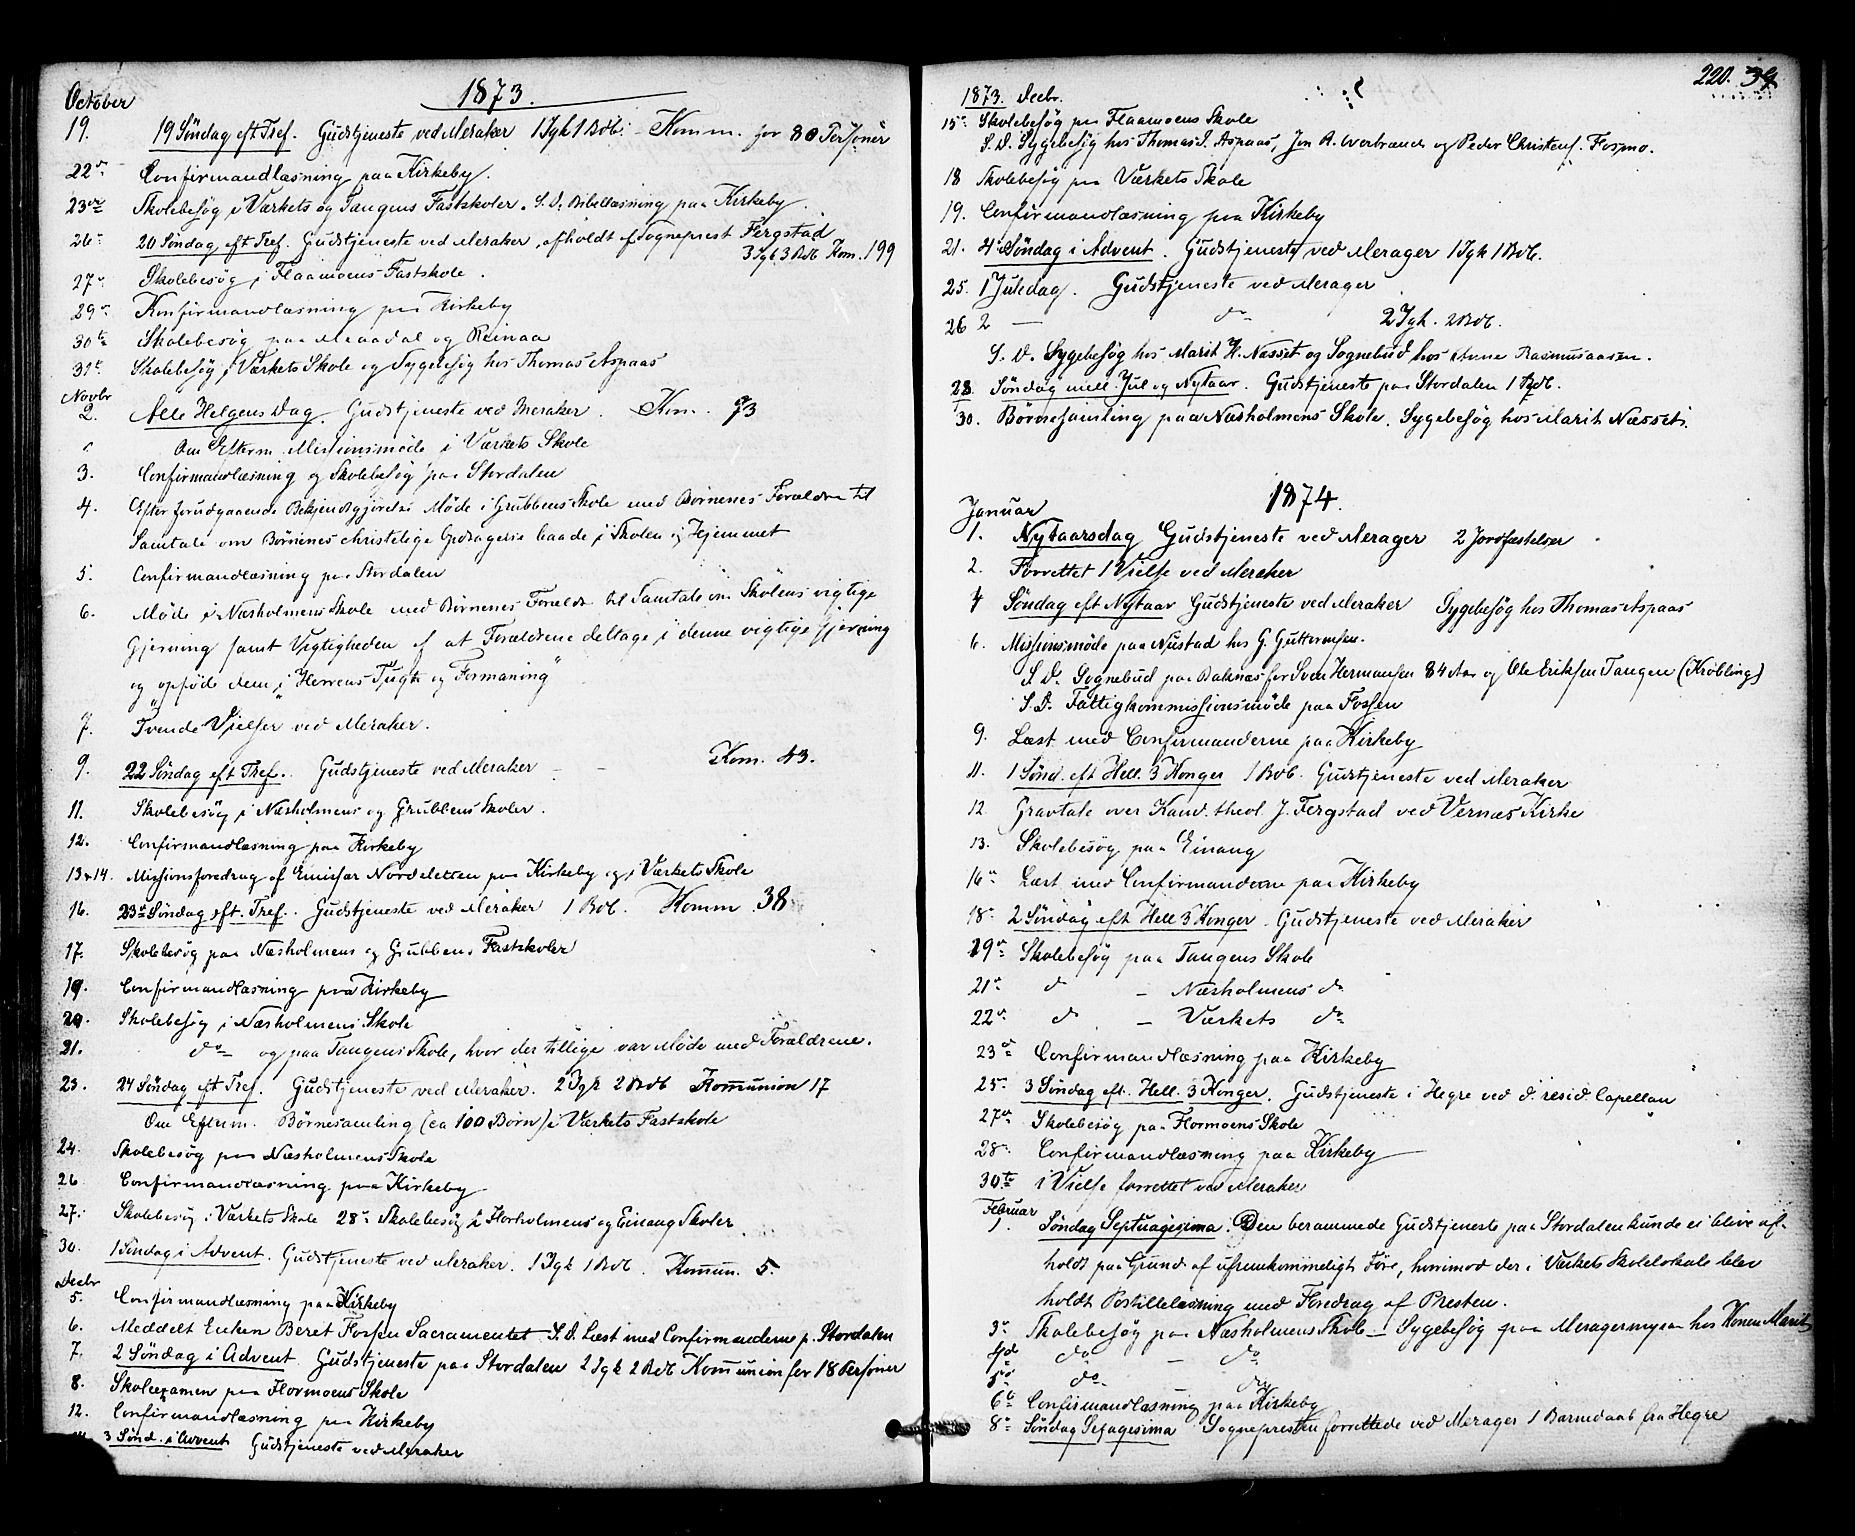 October 1873.
19. 19 Söndag eft Tref. Gudstjeneste ved Meraker 1 Igk 1 Bdb. – Komm. for 80 Personer
22de Confirmandlæsning paa Kirkeby.
23de Skolebesøg i Værkets og Tangens Fastskoler. S. D. Bibellæsning paa Kirkeby.
26 20 Söndag eft Tref. Gudstjeneste ved Meraker, afholdt af Sogneprest Fergstad
3 Igk 3 Bdb Kom. 199
27 Skolebesøg i Flaamoens Fastskole.
29 Konfirmandlæsning paa Kirkeby
30te Skolebesøg paa og Reinaa
31te Skolebesøg i Værkets Skole og Sygebesøg hos Thomas Aspaas
Novbr
2. Alle Helgens Dag. Gudstjeneste ved Meraker. Kom. 73
Om Efterm. Missionsmöde i Værkets Skole
3. Confirmandlæsning og Skolebesøg paa Stordalen
4. Efter forudgaaende Bekjendtgjörelse Möde i Grubbens Skole med Börnenes Foreldre til
Samtale om Börnenes christelige Opdragelse baade i Skolen og Hjemmet
5. Confirmandlæsning paa Stordalen
6. Möde i Næsholmens Skole med Börnenes Foreldr til Samtale om Skolens vigtige
Gjerning samt Vigtigheden af at Forældrene deltage i denne vigtige Gjerning
og opföde dem i "Herrens Tugt og Formaning"
7. Tvende Vielser ved Meraker.
9. 22 Söndag eft Tref. Gudstjeneste ved Meraker – – Kom. 43.
11. Skolebesög i Næsholmens og Grubbens Skoler.
12. Confirmandlæsning paa Kirkeby
13 & 14. Missionsforedrag af Emissær Nordeletten paa Kirkeby og i Værkets Skole
16. 23de Söndag eft. Tref. Gudstjeneste ved Meraker 1 Bdb. Komm 38
17. Skolebesög paa Næsholmens og Grubbens Fastskoler
19. Confirmandlæsning paa Kirkeby
20. Skolebesøg i Næsholmens Skole
21. do og paa Tangens Skole, hvor der tillige var Möde med Forældrene.
23. 24 Söndag eft Tref. Gudstjeneste ved Meraker. 2 Igk 2 Bdb Kommunion 17
Om Efterm. Börnesamling (ca 100 Börn) i Værkets Fastskole
24. Skolebesög paa Næsholmens Skole
26 Confirmandlæsning paa Kirkeby
27. Skolebesøg i Værkets Skole 28de Skolebesög i Florholmens og Einang Skoler
30. 1 Söndag i Advent. Gudstjeneste ved Meraker. 1 Igk 1 Bdb. Kommun. 5.
Decbr
5. Confirmandlæsning paa Kirkeby
6. Meddelt Enken Beret Fossen Sacramentet S. D. Læst med Confirmanderne p. Stordalen
7. 2 Söndag i Advent. Gudstjeneste paa Stordalen 2 Igk 2 Bdb Kommunion for 18 Personer
8. Skoleexamen paa Flormoens Skole
12. Confirmandlæsning paa Kirkeby
3 Sönd. i Advent Gudstjeneste ved Meraker
220. 39
1873. Decbr.
15de Skolebesög paa Flaamoens Skole
S. D. Sygebesøg hos Thomas I. Aspaas, Jon A. og Peder Christens. Fosmo.
18 Skolebesøg paa Værkets Skole
19. Confirmandlæsning paa Kirkeby
21. 4de Söndag i Advent. Gudstjeneste ved Merager 1 Igk 1 Bdb.
25. 1 Juledag. Gudstjeneste ved Merager
26 2 — do 2 Igk. 2 Bdb.
S. D. Sygebesøg hos Marit H. Næsset og Sognebud hos Anne Rasmusaasen.
28. Söndag mell. Jul og Nytaar. Gudstjeneste paa Stordalen 1 Bdb.
30. Börnesamling paa Næsholmens Skole. Sygebesøg hos Marit Næsset.
1874.
Januar
1. Nytaarsdag Gudstjeneste ved Merager 2 Jordfæstelser
2. Forrettet 1 Vielse ved Meraker
4 Söndag eft Nytaar Gudstjeneste ved Meraker Sygebesøg hos Thomas Aspaas
6. Missionsmöde paa Nustad hos G. Guttormsen.
S. D. Sognebud paa Baknæs for Sven Hermansen 84 Aar og Ole Eriksen Tangen (Kröbling)
S. D. Fattigkommissionsmöde paa Fossen
9. Læst med Confirmanderne paa Kirkeby
11. 1 Sönd. eft Hell. 3 Konger 1 Bdb. Gudstjeneste ved Meraker
12 Gravtale over Kand. theol. J. Fergstad ved Vernæs Kirke
13. Skolebesög paa Einang
16de Læst med Confirmanderne paa Kirkeby
18de 2 Söndag eft Hell 3 Konger. Gudstjeneste ved Meraker
19de Skolebesøg paa Tangens Skole
21de do – Næsholmens do
22de do – Værkets do
23de Confirmandlæsning paa Kirkeby
25de 3 Söndag eft. Hell. 3 Konger. Gudstjeneste i Hegre ved d. resid. Capellan
27de Skolebesög paa Flormoens Skole
28de Confirmandlæsning paa Kirkeby
30te 1 Vielse forrettet ved Meraker
Februar
1. Söndag Septuagesima. Den berammede Gudstjeneste paa Stordalen kunde ei blive af-
holdt paa Grund af ufremkommeligt Före, hvorimod der i Værkets Skolelokale blev
holdt Postillelæsning med Foredrag af Presten.
3de Skolebesøg paa Næsholmens Skole – Sygebesøg paa Meragermyen hos Konen Marit
4de do – do
5te do do
6te Confirmandlæsning paa Kirkeby
8de Söndag Sexagesima Sognepresten forrettede ved Merager 1 Barnedaab fra Hegre